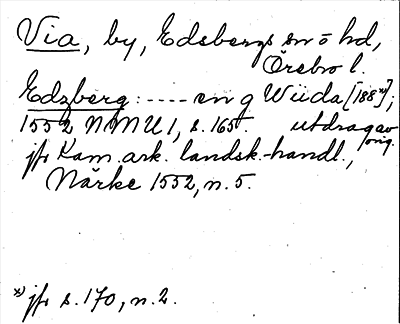 Via, by, Edsbergs sn o hd,
Örebro l.
Edzberg: ---- en g Wiida [188 x)];
1552 NMU 1, s. 165. utdrag av orig.
jfr Kam. ark. landsk.-handl.,
Närke 1552, n. 5.
x) jfr s. 170, n. 2.